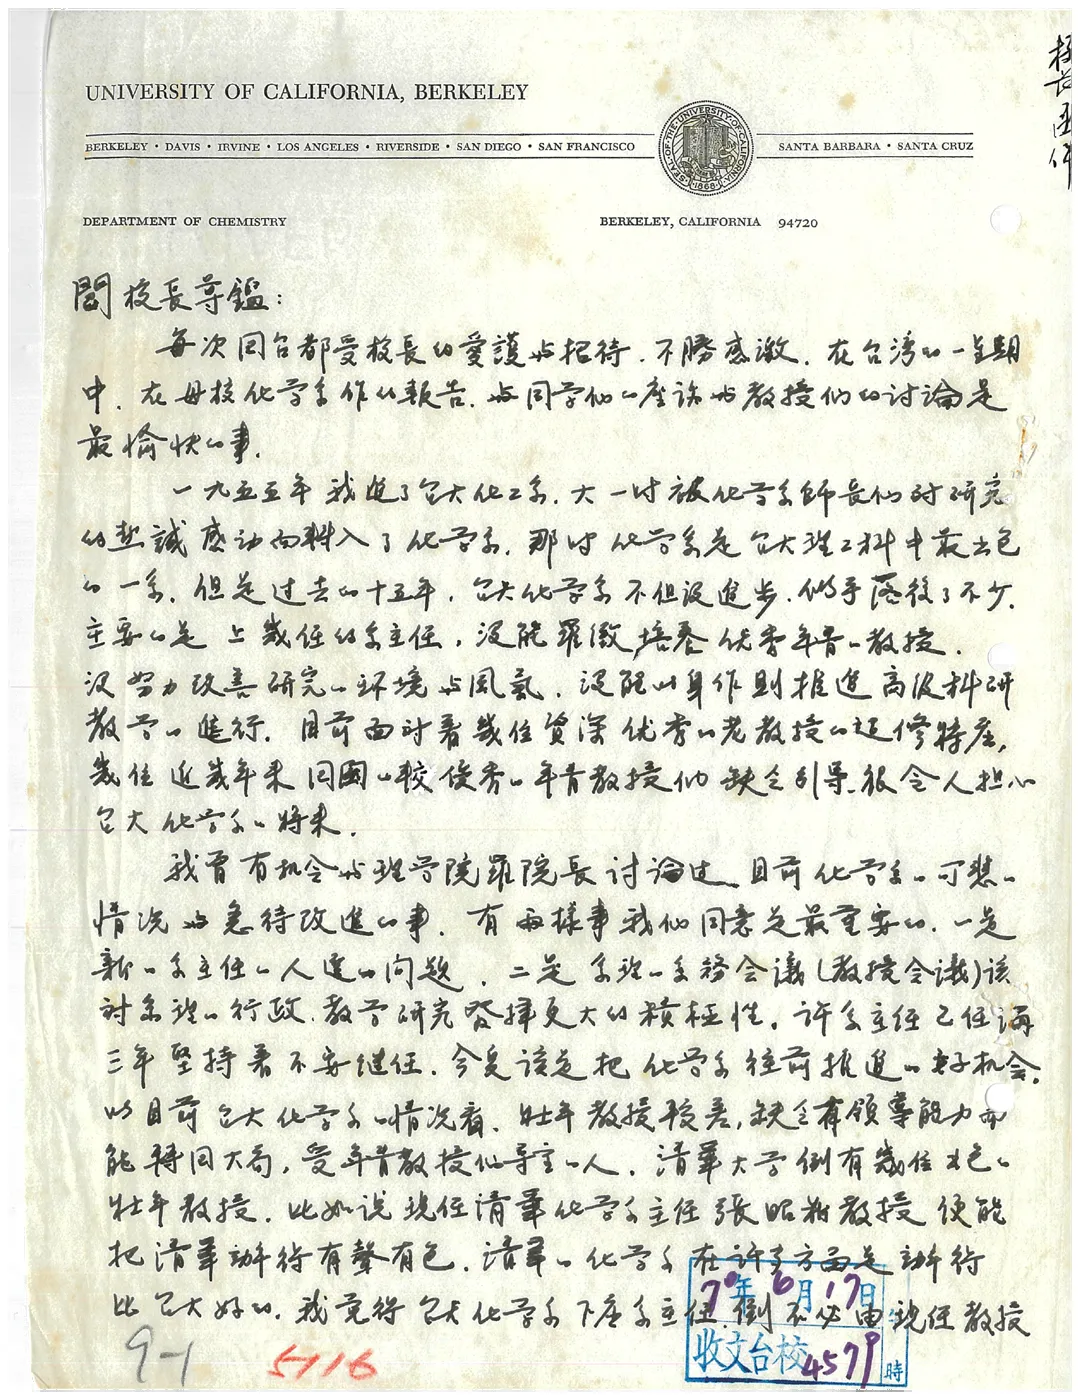 UNIVERSITY OF CALIFORNIA, BERKELEY
BERKELEY • DAVIS • IRVINE • LOS ANGELES • RIVERSIDE • SAN DIEGO • SAN FRANCISCO
SEAL OF THE UNIVERSITY OF CALIFORNIA 1868
SANTA BARBARA • SANTA CRUZ
DEPARTMENT OF CHEMISTRY
BERKELEY, CALIFORNIA 94720
校長函件
閻校長尊鑑:
每次回台都受校長的愛護与招待.不勝感激.在台湾的一星期
中.在母校化学系作的報告.与同学们的座談与教授们的討論是
最愉快的事.
一九五五年我進了台大化工系.大一时被化学系師長们对研究
的热誠感动而转入了化学系.那时化学系是台大理工科中最出色
的一系.但是过去的十五年.台大化学系不但没進步.似乎落後了不少.
主要的是上幾任的系主任,没能羅致,培养优秀年青的教授.
没努力改善研究的环境与風氣.没能以身作則推進高级科研
教学的進行.目前面对着幾位資深优秀的老教授的退修特座,
幾位近幾年来回國的較優秀的年青教授们缺乏引导.很令人担心
台大化学系的将来.
我曾有机会与理学院羅院長討論过目前化学系的可悲的
情况与急待改進的事.有兩樣事我们同意是最重要的.一是
新的系主任的人選的问題.二是系裡的系務会議(教授会議)该
对系裡的行政.教学研究發揮更大的積極性.許系主任已任满
三年堅持着不要继任.今夏该是把化学系往前推進的好机会.
以目前台大化学系的情况看.壯年教授較差,缺乏有領導能力而
能轉回大局,受年青教授们尊重的人.清華大学倒有幾位出色的
壯年教授.比如说现任清華化学系主任張昭鼎教授便能
把清華辦得有聲有色.清華的化学系在许多方面是辦得
比台大好的.我觉得台大化学系下座系主任.倒不必由现任教授
70年6月17日
收文台校4579
時
9-1
5116